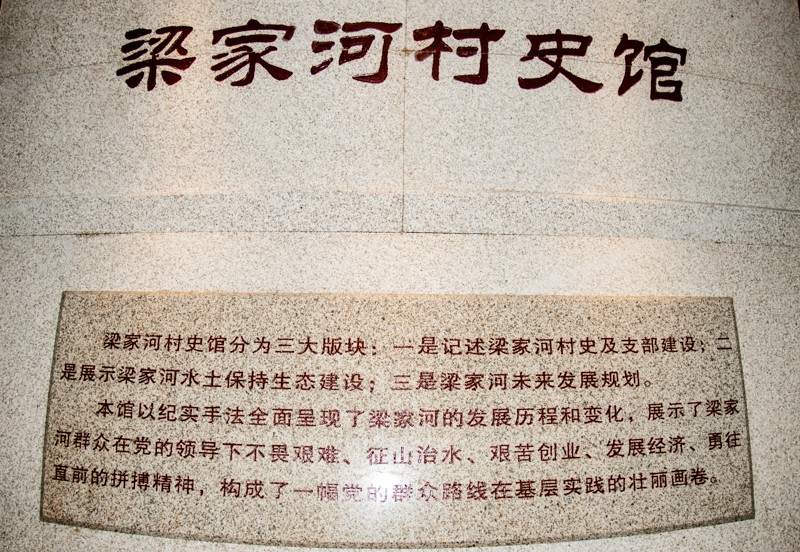 梁家河村史馆
梁家河村史馆分为三大版块：一是记述梁家河村史及支部建设；二
是展示梁家河水土保持生态建设；三是梁家河未来发展规划。
本馆以纪实手法全面呈现了梁家河的发展历程和变化，展示了梁家
河群众在党的领导下不畏艰难、征山治水、艰苦创业、发展经济、勇往
直前的拼搏精神，构成了一幅党的群众路线在基层实践的壮丽画卷。